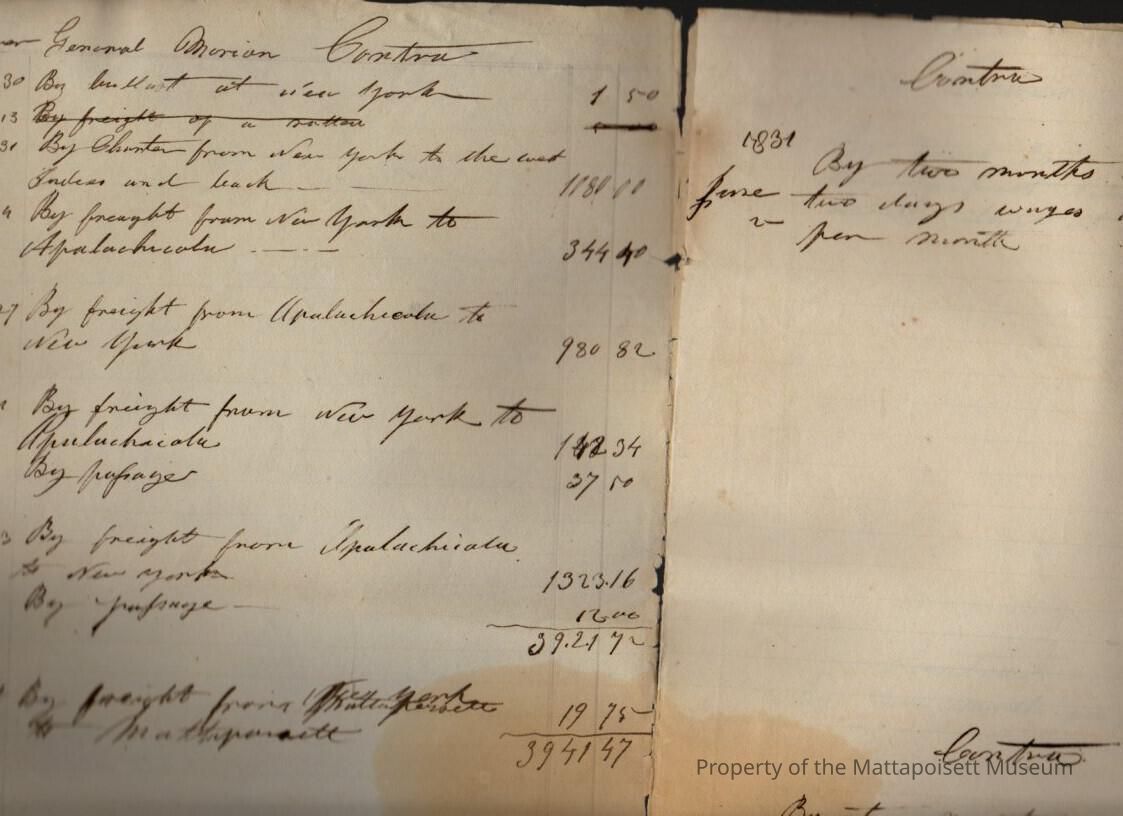 General Marion Contra
30 By ballast at New York 1 50
13 By freight of a
31 By Charter from New York to the west
Indies and back 1180 00
By freight from New York to
Apalachicola 344 40
27 By freight from Apalachicola to
New York 980 82
By freight from New York to
Apalachicola 142 34
By passage 37 50
3 By freight from Apalachicola
to New York 1323.16
By passage 12 00
3921 72
By freight from New York
to Mattapoisett 19 75
3941 47
Contra
1831
By two months
June two days wages
2 per month
Contra
Property of the Mattapoisett Museum